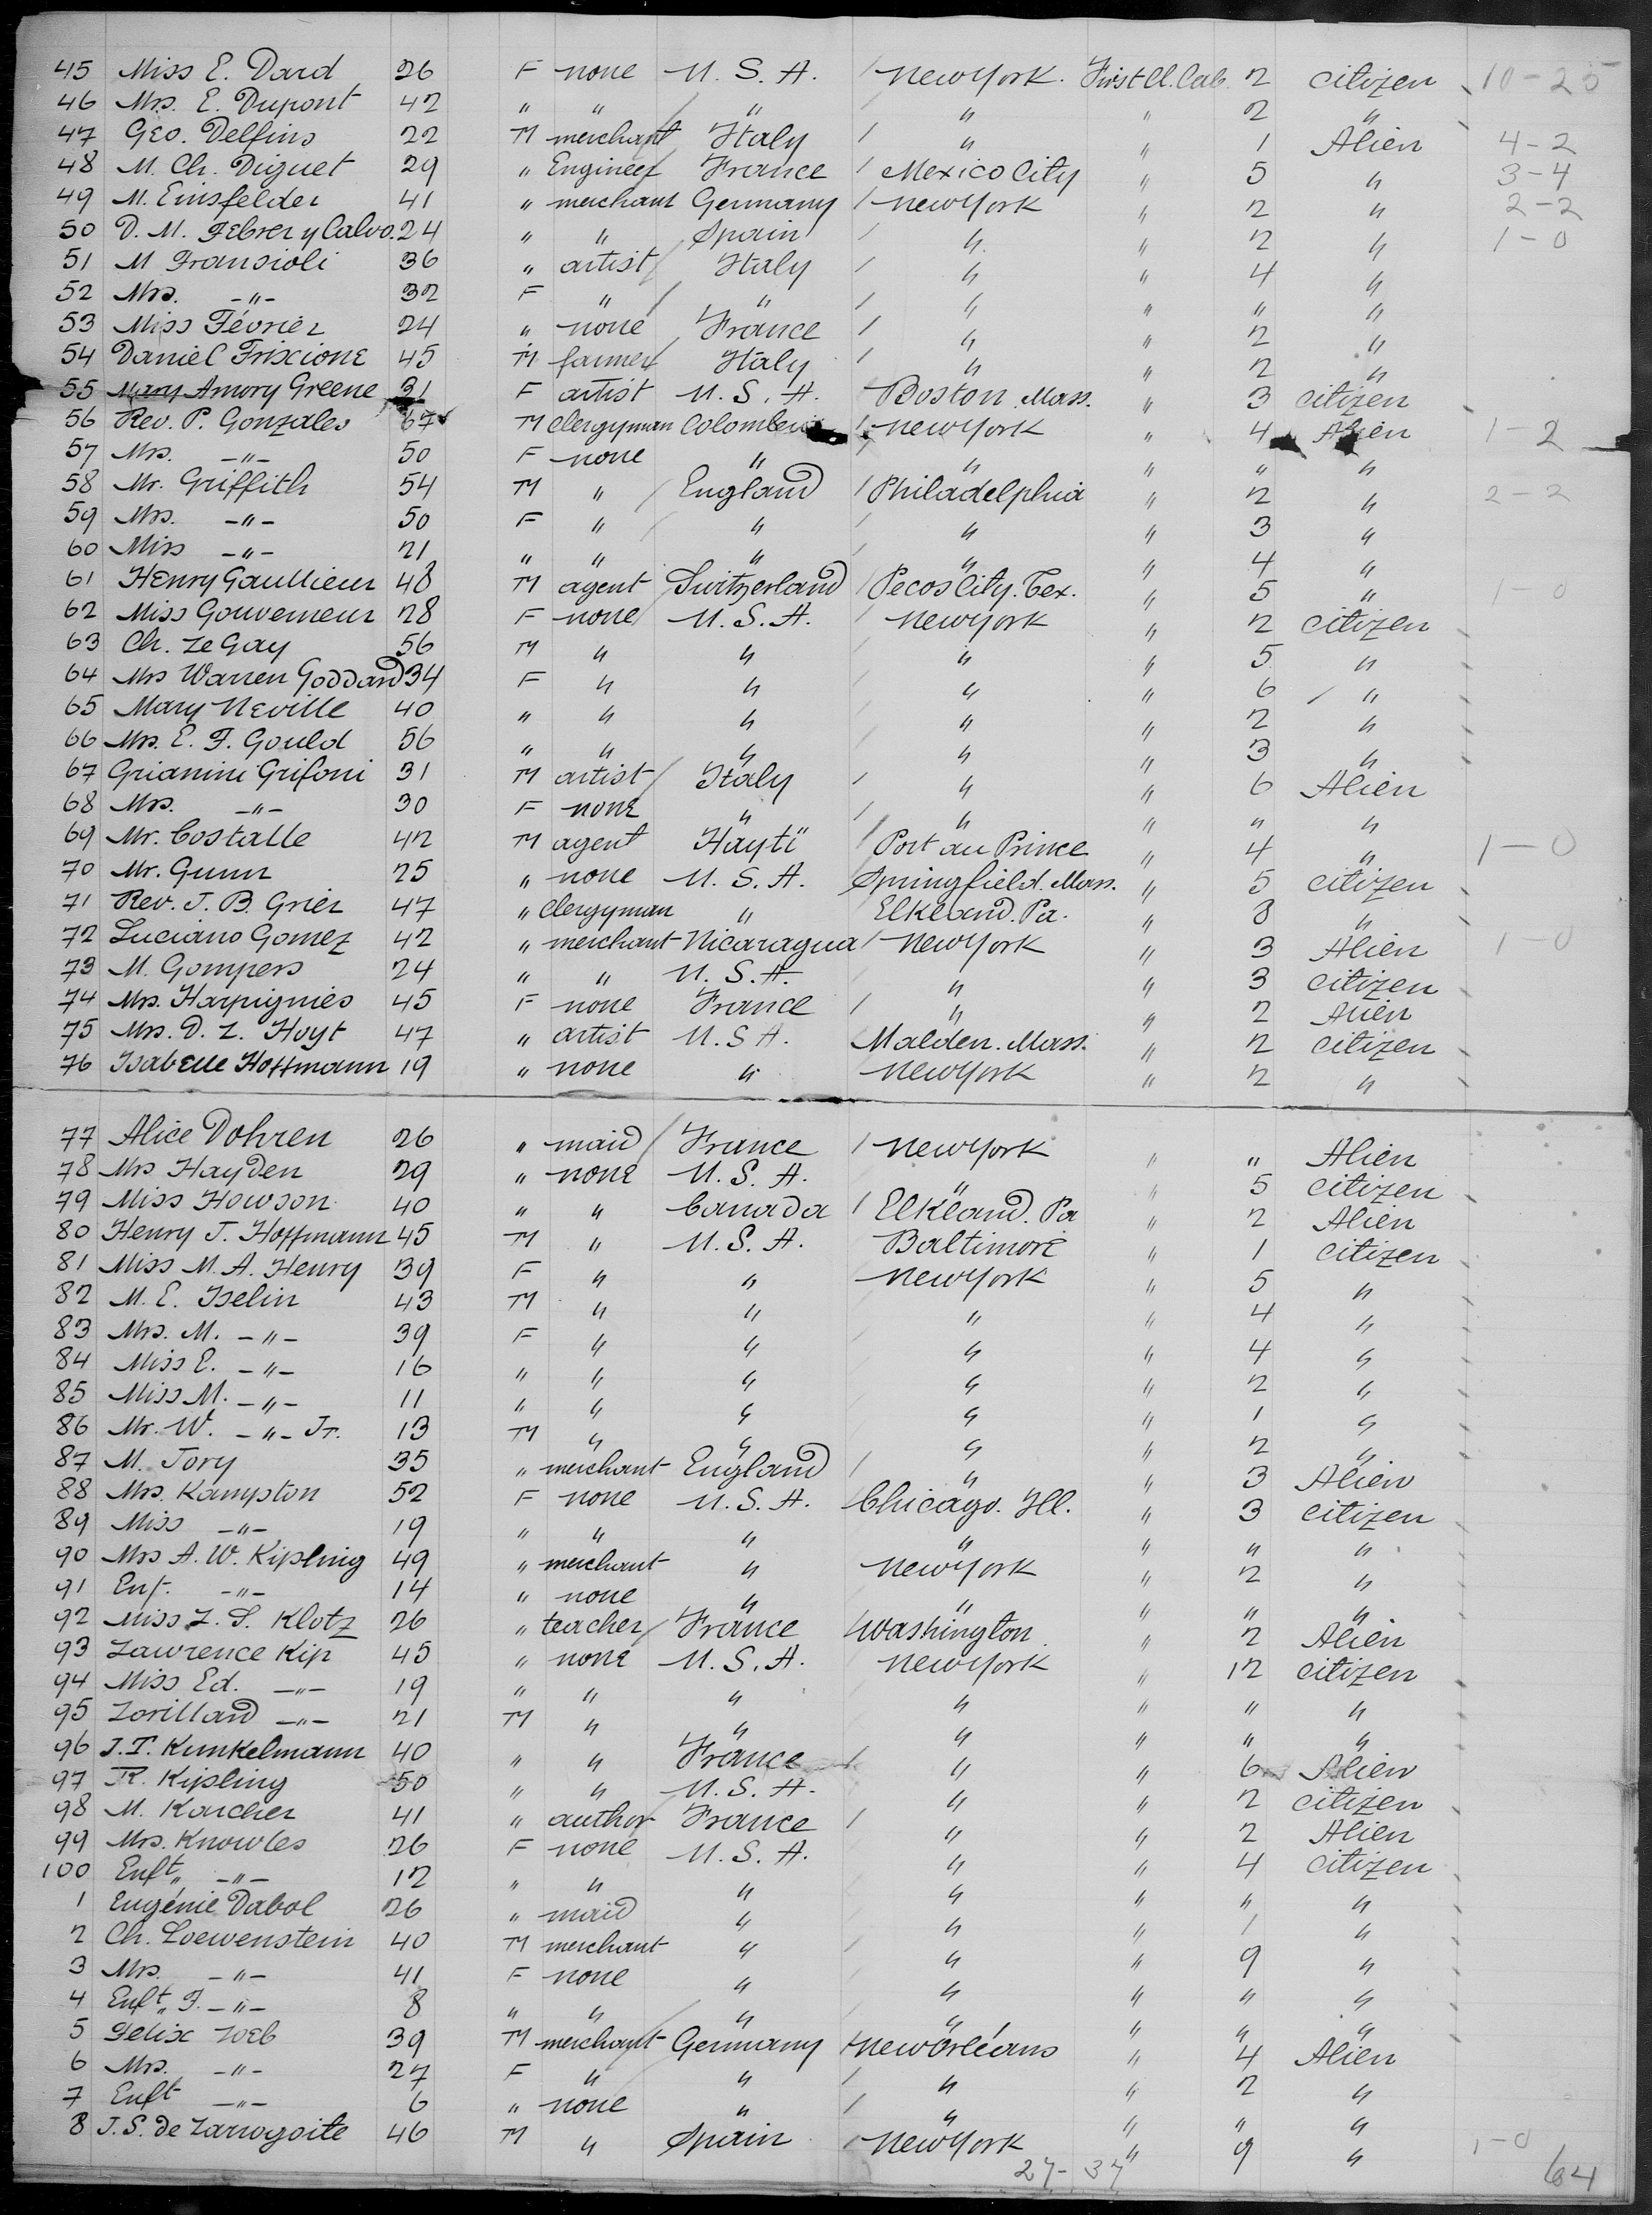 45 Miss E. Dard 26 F none U. S. A. / New York. First Cl. Cab. 2 citizen 10-25
46 Mrs. E. Dupont 42 " " " " " 2 "
47 Geo. Delfino 22 M merchant Italy / " " 1 Alien 4-2
48 M. Ch. Diguet 29 " Engineer France / Mexico City " 5 " 3-4
49 M. Einsfelder 41 " merchant Germany / New York " 2 " 2-2
50 D. M. Febrer y Calvo. 24 " " Spain / " " 2 " 1-0
51 M Fransioli 36 " artist Italy / " " 4 "
52 Mrs. -"- 32 F " " / " " " "
53 Miss Février 24 " none France / " " 2 "
54 Daniel Friscione 45 M farmer Italy / " " 2 "
55 Mary Amory Greene 31 F artist U. S. A. Boston. Mass. " 3 citizen
56 Rev. P. Gonzales 67 M Clergyman / New York " 4 Alien 1-2
57 Mrs. -"- 50 F none " " " " "
58 Mr. Griffith 54 M " England / Philadelphia " 2 " 2-2
59 Mrs. -"- 50 F " " / " " 3 "
60 Miss -"- 21 " " " / " " 4 "
61 Henry Gaullieur 48 M agent Switzerland / Pecos City. Tex. " 5 " 1-0
62 Miss Gouverneur 28 F none U. S. A. New York " 2 citizen
63 Ch. Le Gay 56 M " " " " 5 "
64 Mrs Warren Goddard 34 F " " " " 6 "
65 Mary Neville 40 " " " " " 2 "
66 Mrs. E. F. Gould 56 " " " " " 3 "
67 Grianini Grifoni 31 M artist Italy / " " 6 Alien
68 Mrs. -"- 30 F none " / " " " "
69 Mr. Costalle 42 M agent Hayti / Port au Prince " 4 " 1-0
70 Mr. Gunn 25 " none U. S. A. Springfield. Mass. " 5 citizen
71 Rev. J. B. Grier 47 " Clergyman " Elkland. Pa. " 8 "
72 Luciano Gomez 42 " merchant Nicaragua / New York " 3 Alien 1-0
73 M. Gompers 24 " " U. S. A. " " 3 citizen
74 Mrs. Harpignies 45 F none France / " " 2 Alien
75 Mrs. D. L. Hoyt 47 " artist U. S A. Malden. Mass. " 2 citizen
76 Isabelle Hoffmann 19 " none " New York " 2 "
77 Alice Dohren 26 " maid France / New York " " Alien
78 Mrs Hayden 29 " none U. S. A. " " 5 citizen
79 Miss Howson 40 " " Canada / Elkland. Pa " 2 Alien
80 Henry J. Hoffmann 45 M " U. S. A. Baltimore " 1 citizen
81 Miss M. A. Henry 39 F " " New York " 5 "
82 M. E. Iselin 43 M " " " " 4 "
83 Mrs. M. -"- 39 F " " " " 4 "
84 Miss E. -"- 16 " " " " " 2 "
85 Miss M. -"- 11 " " " " " 1 "
86 Mr. W. -"- Jr. 13 M " " " " 2 "
87 M. Jory 35 " merchant England / " " 3 Alien
88 Mrs. Kampston 52 F none U. S. A. Chicago. Ill. " 3 citizen
89 Miss -"- 19 " " " " " " "
90 Mrs A. W. Kipling 49 " merchant " New York " 2 "
91 Enf. -"- 14 " none " " " " "
92 Miss L. S. Klotz 26 " teacher France / Washington " 2 Alien
93 Lawrence Kip 45 " none U. S. A. New York " 12 citizen
94 Miss Ed. -"- 19 " " " " " " "
95 Lorilland -"- 21 M " " " " " "
96 J. T. Kunkelmann 40 " " France / " " 6 Alien
97 R. Kipling 50 " " U. S. A. " " 2 citizen
98 M. Karcher 41 " author France / " " 2 Alien
99 Mrs. Knowles 26 F none U. S. A. " " 4 citizen
100 Enft. -"- 12 " " " " " " "
1 Eugénie Dabol 26 " maid " " " 1 "
2 Ch. Loewenstein 40 M merchant " " " 9 "
3 Mrs. -"- 41 F none " " " " "
4 Enft. F. -"- 8 " " " " " " "
5 Felix Loeb 39 M merchant Germany / New Orléans " 4 Alien
6 Mrs. -"- 27 F " " / " " 2 "
7 Enft -"- 6 " none " / " " " "
8 J. S. de Larrogoite 46 M " Spain / New York " 9 " 1-0
27-37 64